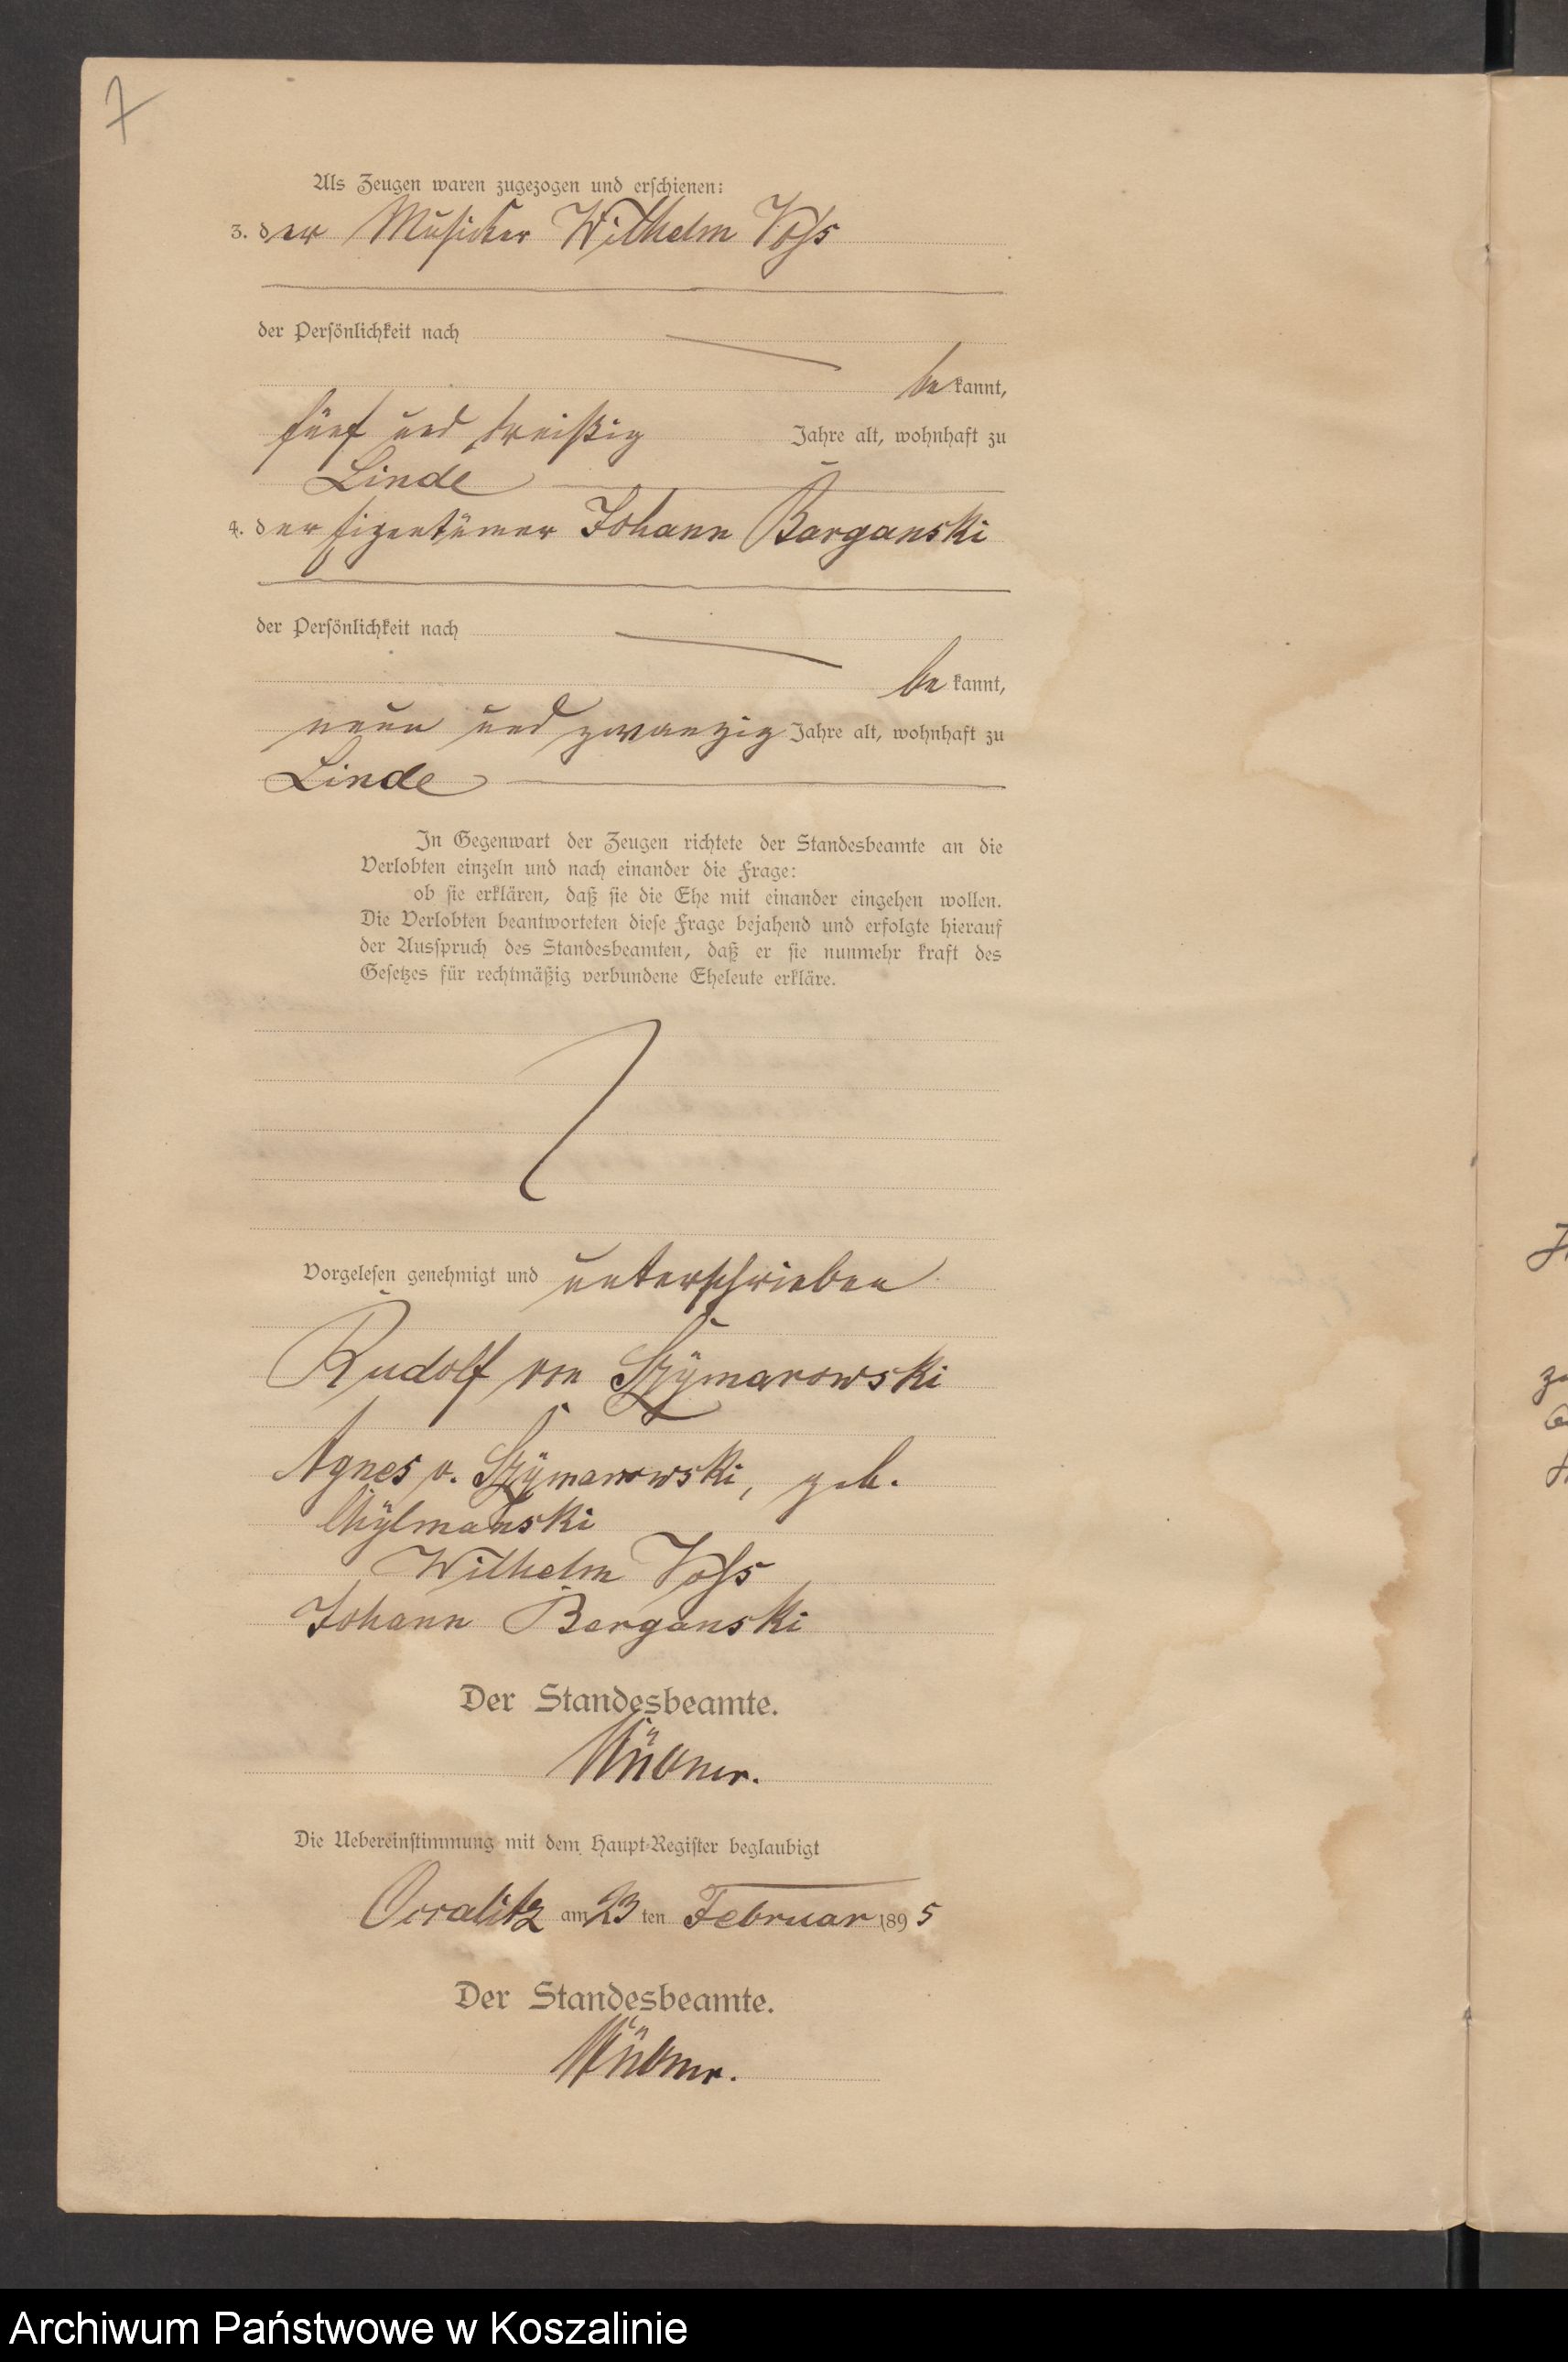 7
Als Zeugen waren zugezogen und erschienen:
3. der Musiker Wilhelm Voss
der Persönlichkeit nach
be kannt,
fünf und dreißig Jahre alt, wohnhaft zu
Linde
4. der Eigentümer Johann Barganski
der Persönlichkeit nach
be kannt,
neun und zwanzig Jahre alt, wohnhaft zu
Linde
In Gegenwart der Zeugen richtete der Standesbeamte an die
Verlobten einzeln und nach einander die Frage:
ob sie erklären, daß sie die Ehe mit einander eingehen wollen.
Die Verlobten beantworteten diese Frage bejahend und erfolgte hierauf
der Ausspruch des Standesbeamten, daß er sie nunmehr kraft des
Gesetzes für rechtmäßig verbundene Eheleute erkläre.
Vorgelesen genehmigt und unterschrieben
Rudolf von Szÿmarowski
Agnes v. Szÿmarowski, geb.
Wilhelm Voss
Johann Barganski
Der Standesbeamte.
Die Uebereinstimmung mit dem Haupt-Register beglaubigt
am 23 ten Februar 1895
Der Standesbeamte.
Archiwum Państwowe w Koszalinie